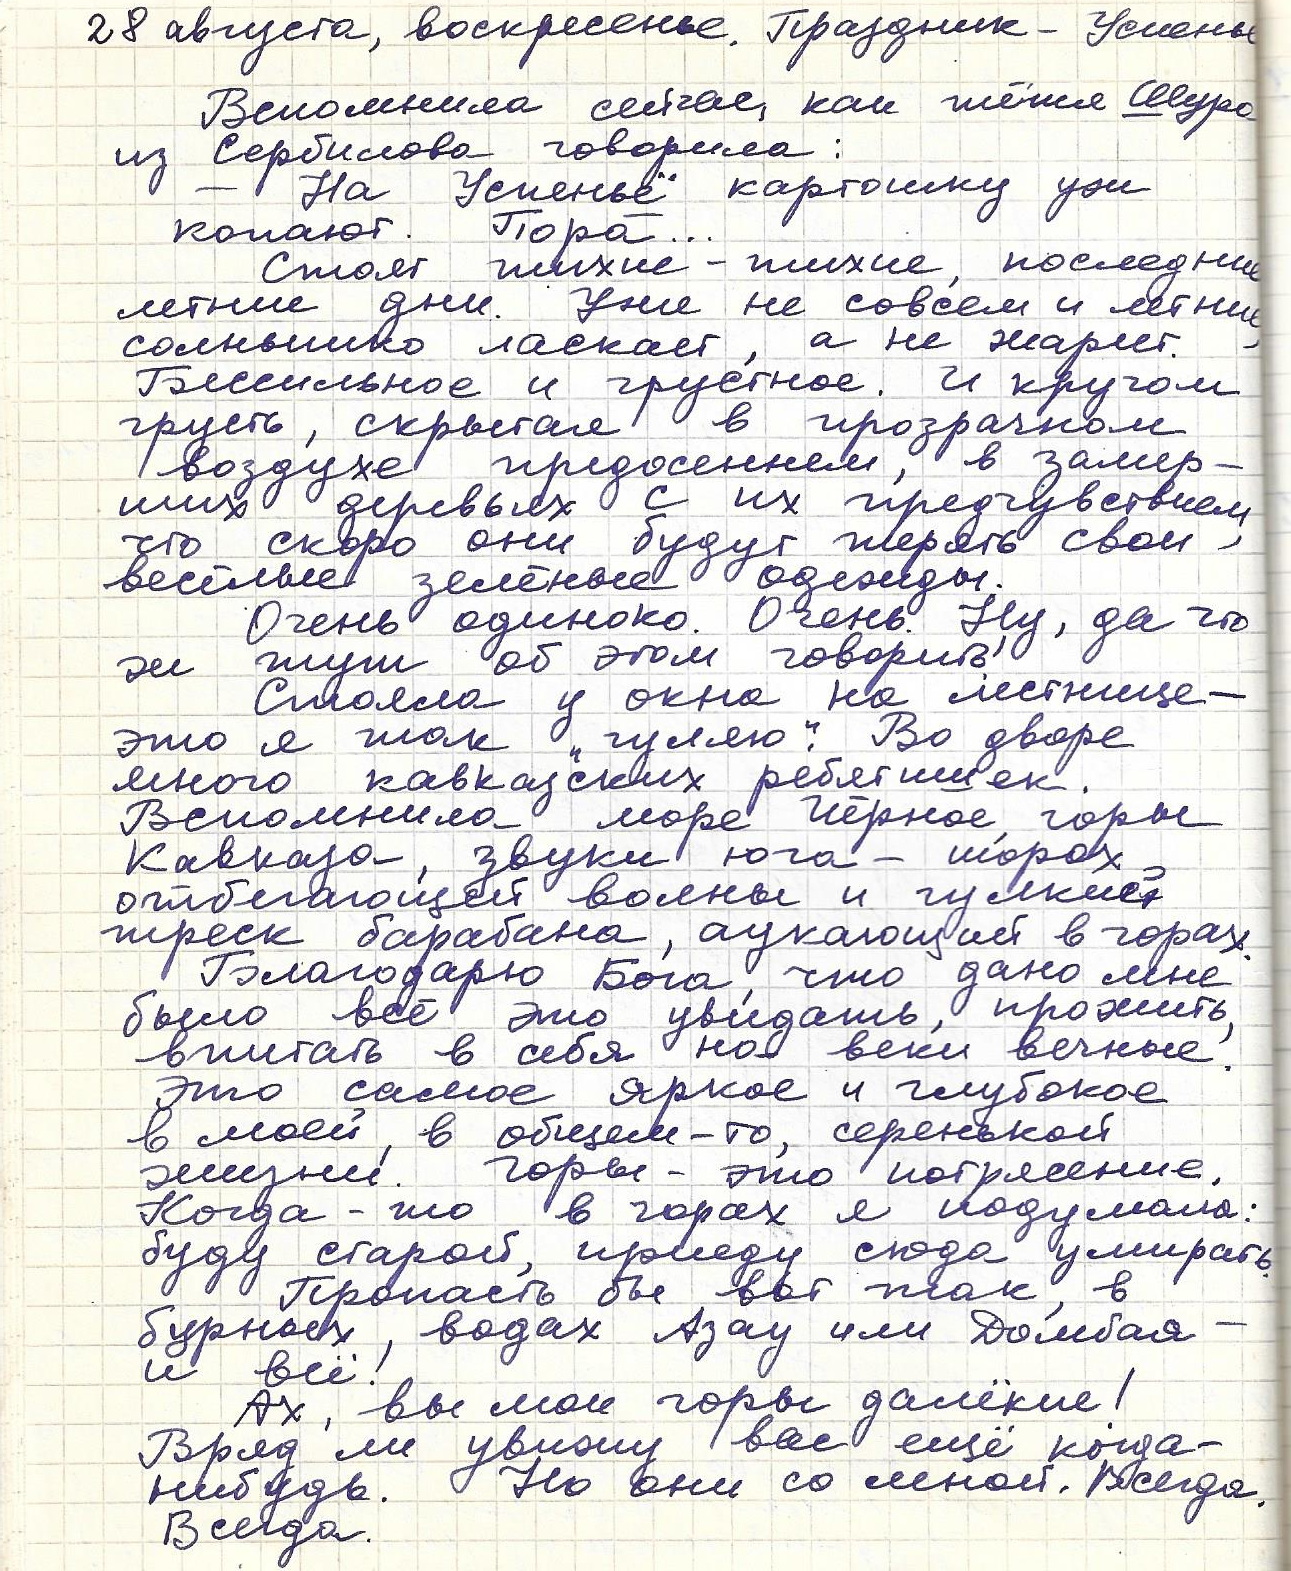 28 августа, воскресенье. Праздник - Успенье
Вспомнила сейчас, как тётя Шура
из Сербилова говорила:
— На Успеньё картошку уж
копают. Пора...
Стоят тихие-тихие, последние
летние дни. Уже не совсем и летние,
солнышко ласкает, а не жарит.
Бессильное и грустное. И кругом
грусть, скрытая в прозрачном
воздухе предосеннем, в замер-
ших деревьях с их предчувствием,
что скоро они будут терять свои
весёлые зелёные одежды.
Очень одиноко. Очень. Ну, да что
ж тут об этом говорить!
Стояла у окна на лестнице —
это я так „гуляю". Во дворе
много кавказских ребятишек.
Вспомнила море Чёрное, горы
Кавказа, звуки юга - шорох
отбегающей волны и гулкий
треск барабана, аукающий в горах.
Благодарю Бога, что дано мне
было всё это увидать, прожить,
впитать в себя на веки вечные.
Это самое яркое и глубокое
в моей, в общем-то, серенькой
жизни. Горы - это потрясение.
Когда-то в горах я подумала:
буду старой, приеду сюда умирать.
Пропасть бы вот так, в
бурных, водах Азау или Домбая —
и всё!
Ах, вы мои горы далёкие!
Вряд ли увижу вас ещё когда-
нибудь. Но они со мной. Всегда.
Всегда.